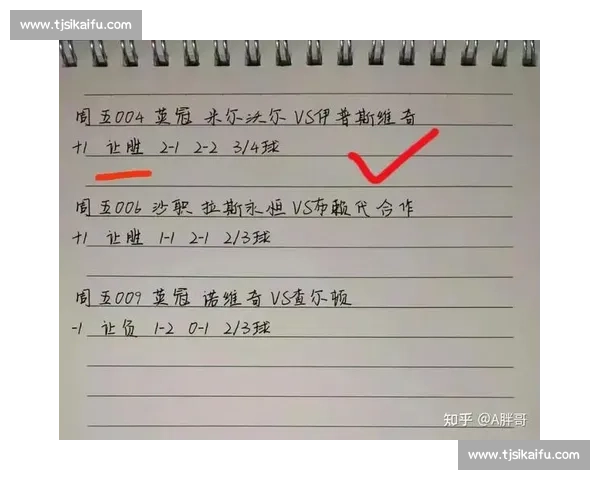 www.tjsikaifu.com
周五004 英冠 米尔沃尔 VS伊普斯维奇
+1 让胜 2-1 2-2 3/4球
周五006 沙职 拉斯永恒 VS布赖代合作
+1 让胜 1-1 2-1 2/3球
周五009 英冠 诺维奇 VS查尔顿
-1 让负 1-2 0-1 2/3球
知乎 @A胖哥
www.tjsikaifu.com